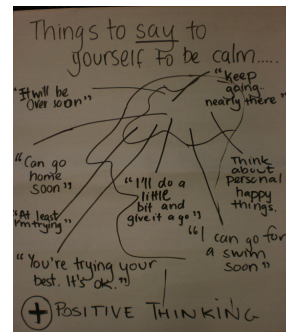 Things to say to
yourself to be calm.....
"It will be
over soon"
"Keep
going..
nearly there"
"Can go
home
soon"
"I'll do a
little
bit and
give it a go"
Think
about
personal
happy
things.
"At least
I'm trying"
"I can go for
a swim
soon"
"You're trying your
best. It's ok."
+ POSITIVE THINKING